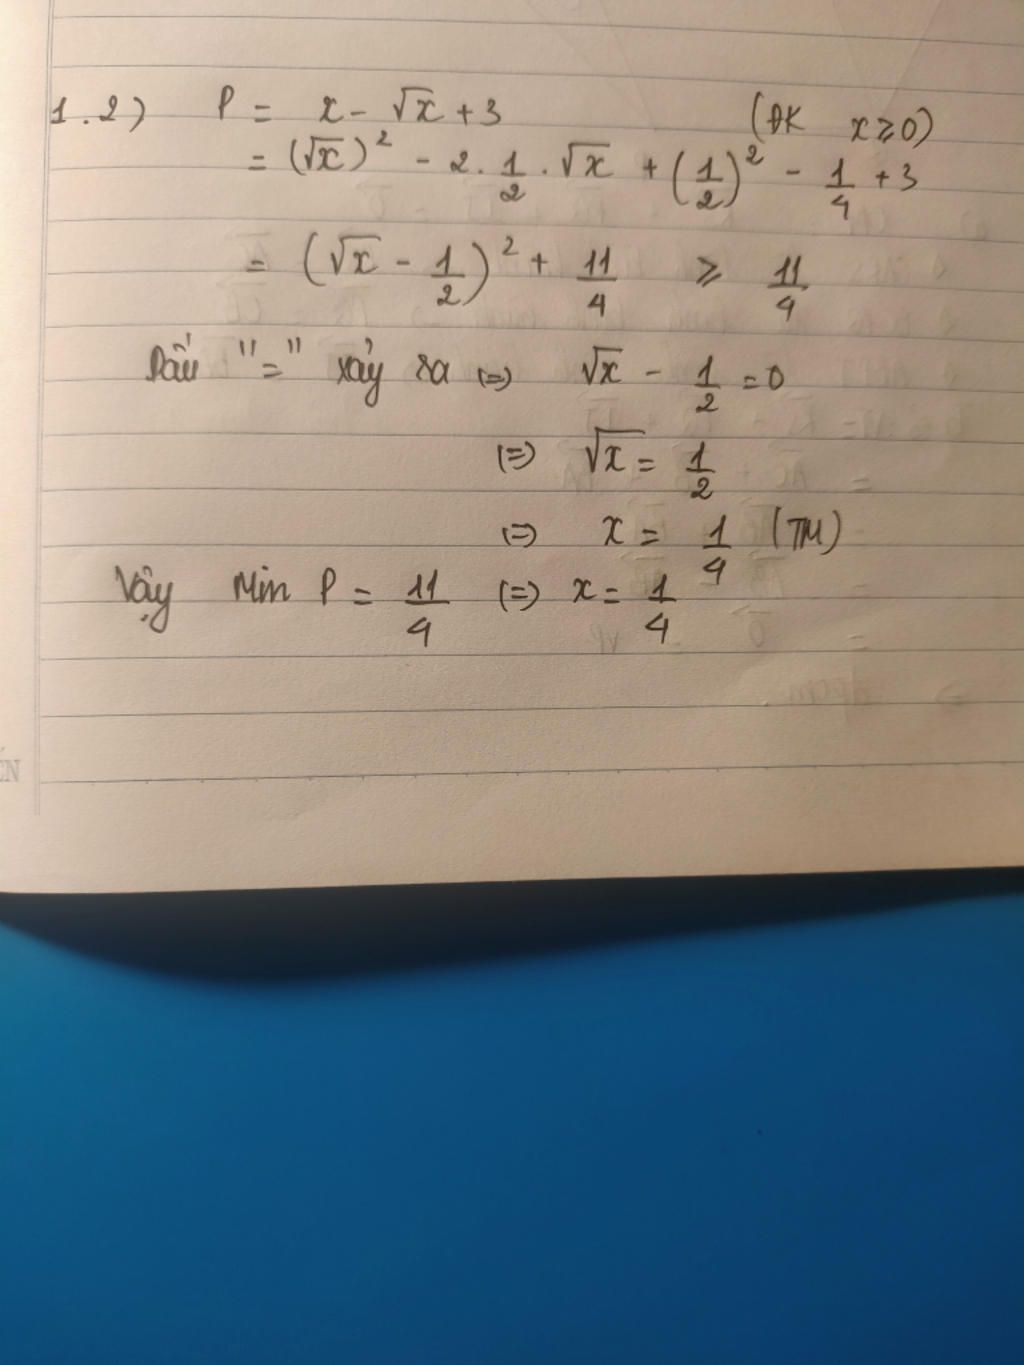 1.2) P = x - √x + 3 (ĐK x ≥ 0)
= (√x)² - 2. 1/2 . √x + (1/2)² - 1/4 + 3
= (√x - 1/2)² + 11/4 ≥ 11/4
Dấu "=" xảy ra (=) √x - 1/2 = 0
(=) √x = 1/2
(=) x = 1/4 (TM)
Vậy Min P = 11/4 (=) x = 1/4
ẾN